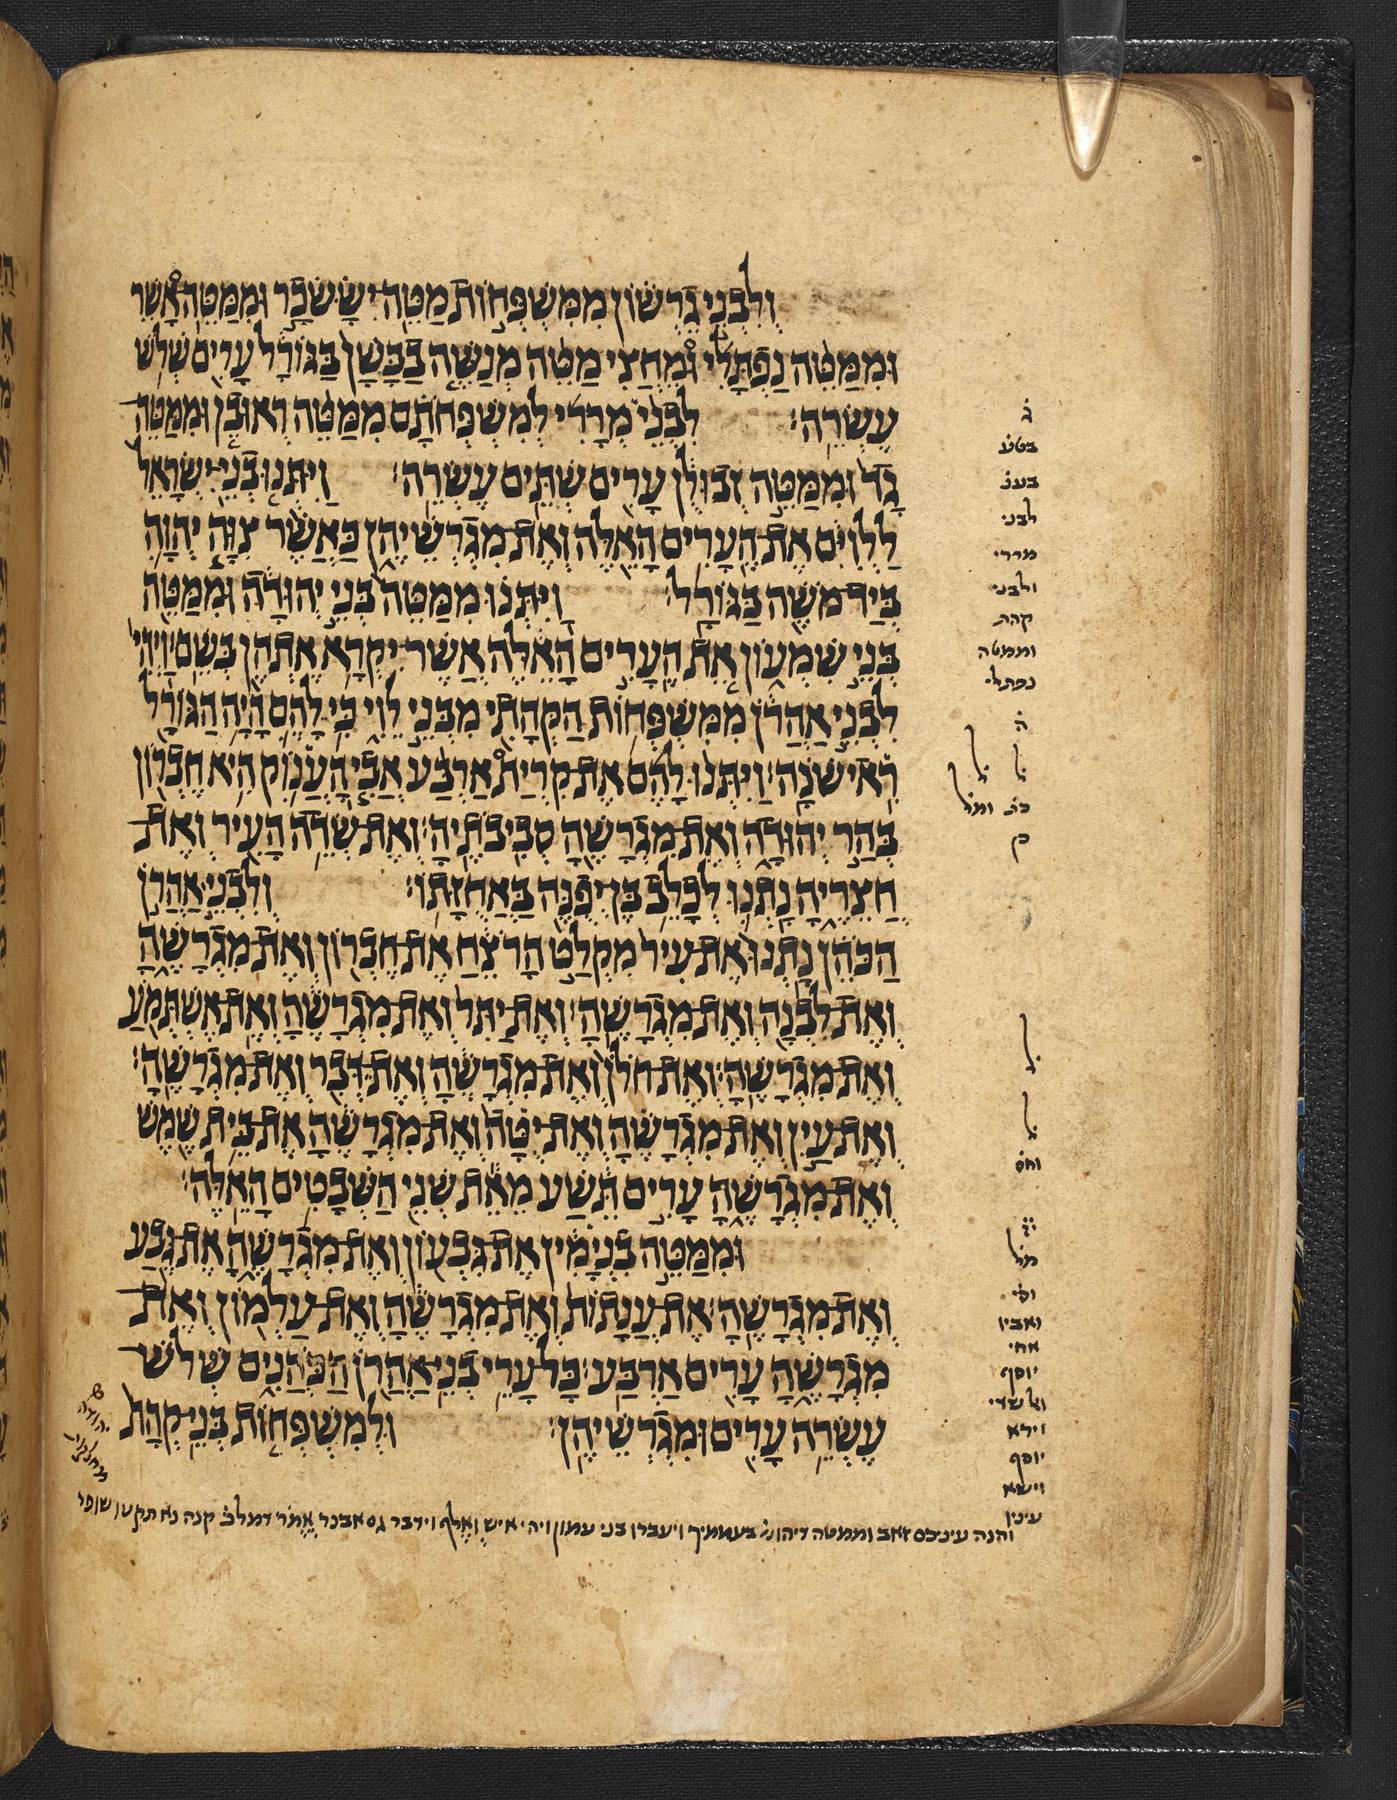 וְלִבְנֵי גֵרְשׁוֹן מִמִּשְׁפְּחוֹת מַטֵּה יִשָּׂשכָר וּמִמַּטֵּה אָשֵׁר
וּמִמַּטֵּה נַפְתָּלִי וּמֵחֲצִי מַטֵּה מְנַשֶּׁה בַבָּשָׁן בַּגּוֹרָל עָרִים שְׁלֹשׁ
עֶשְׂרֵה׃ לִבְנֵי מְרָרִי לְמִשְׁפְּחֹתָם מִמַּטֵּה רְאוּבֵן וּמִמַּטֵּה
גָד וּמִמַּטֵּה זְבוּלֻן עָרִים שְׁתֵּים עֶשְׂרֵה׃ וַיִּתְּנוּ בְנֵי יִשְׂרָאֵל
לַלְוִיִּם אֶת הֶעָרִים הָאֵלֶּה וְאֶת מִגְרְשֵׁיהֶן כַּאֲשֶׁר צִוָּה יְהוָה
בְּיַד מֹשֶׁה בַּגּוֹרָל׃ וַיִּתְּנוּ מִמַּטֵּה בְּנֵי יְהוּדָה וּמִמַּטֵּה
בְּנֵי שִׁמְעוֹן אֵת הֶעָרִים הָאֵלֶּה אֲשֶׁר יִקְרָא אֶתְהֶן בְּשֵׁם׃ וַיְהִי
לִבְנֵי אַהֲרֹן מִמִּשְׁפְּחוֹת הַקְּהָתִי מִבְּנֵי לֵוִי כִּי לָהֶם הָיָה הַגּוֹרָל
רִאישֹׁנָה׃ וַיִּתְּנוּ לָהֶם אֶת קִרְיַת אַרְבַּע אֲבִי הָעֲנוֹק הִיא חֶבְרוֹן
בְּהַר יְהוּדָה וְאֶת מִגְרָשֶׁהָ סְבִיבֹתֶיהָ׃ וְאֶת שְׂדֵה הָעִיר וְאֶת
חֲצֵרֶיהָ נָתְנוּ לְכָלֵב בֶּן יְפֻנֶּה בַּאֲחֻזָּתוֹ׃ וְלִבְנֵי אַהֲרֹן
הַכֹּהֵן נָתְנוּ אֶת עִיר מִקְלַט הָרֹצֵחַ אֶת חֶבְרוֹן וְאֶת מִגְרָשֶׁהָ
וְאֶת לִבְנָה וְאֶת מִגְרָשֶׁהָ׃ וְאֶת יַתִּר וְאֶת מִגְרָשֶׁהָ וְאֶת אֶשְׁתְּמֹעַ
וְאֶת מִגְרָשֶׁהָ׃ וְאֶת חֹלֹן וְאֶת מִגְרָשֶׁהָ וְאֶת דְּבִר וְאֶת מִגְרָשֶׁהָ׃
וְאֶת עַיִן וְאֶת מִגְרָשֶׁהָ וְאֶת יֻטָּה וְאֶת מִגְרָשֶׁהָ אֶת בֵּית שֶׁמֶשׁ
וְאֶת מִגְרָשֶׁהָ עָרִים תֵּשַׁע מֵאֵת שְׁנֵי הַשְּׁבָטִים הָאֵלֶּה׃
וּמִמַּטֵּה בִנְיָמִין אֶת גִּבְעוֹן וְאֶת מִגְרָשֶׁהָ אֶת גֶּבַע
וְאֶת מִגְרָשֶׁהָ׃ אֶת עֲנָתוֹת וְאֶת מִגְרָשֶׁהָ וְאֶת עַלְמוֹן וְאֶת
מִגְרָשֶׁהָ עָרִים אַרְבַּע׃ כָּל עָרֵי בְנֵי אַהֲרֹן הַכֹּהֲנִים שְׁלֹשׁ
עֶשְׂרֵה עָרִים וּמִגְרְשֵׁיהֶן׃ וּלְמִשְׁפְּחוֹת בְּנֵי קְהָת
ג
בטע
בענ
לבני
מררי
ולבני
קהת
וממטה
נפתלי
ה
ל
כק
ל
ל
וחס
ואבין
אחי
יוסף
וירא
יוסף
וישא
עינין
והנה עיניכם זאב וממטה דיהוש בעממיך ויעברו בני עמון ויהי איש וידבר גם אבנר קנה נא תקעו שופר
יהודה